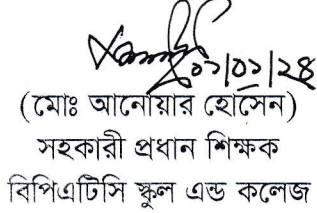 ০১|০১|২৪
(মোঃ আনোয়ার হোসেন)
সহকারী প্রধান শিক্ষক
বিপিএটিসি স্কুল এন্ড কলেজ